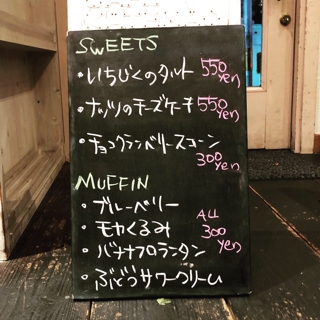 SWEETS
・いちじくのタルト 550 yen
・ナッツのチーズケーキ 550 yen
・チョコクランベリースコーン 300 yen
MUFFIN
・ブルーベリー
・モカくるみ ALL 300 yen
・バナナフロランタン
・ぶどうサワークリーム